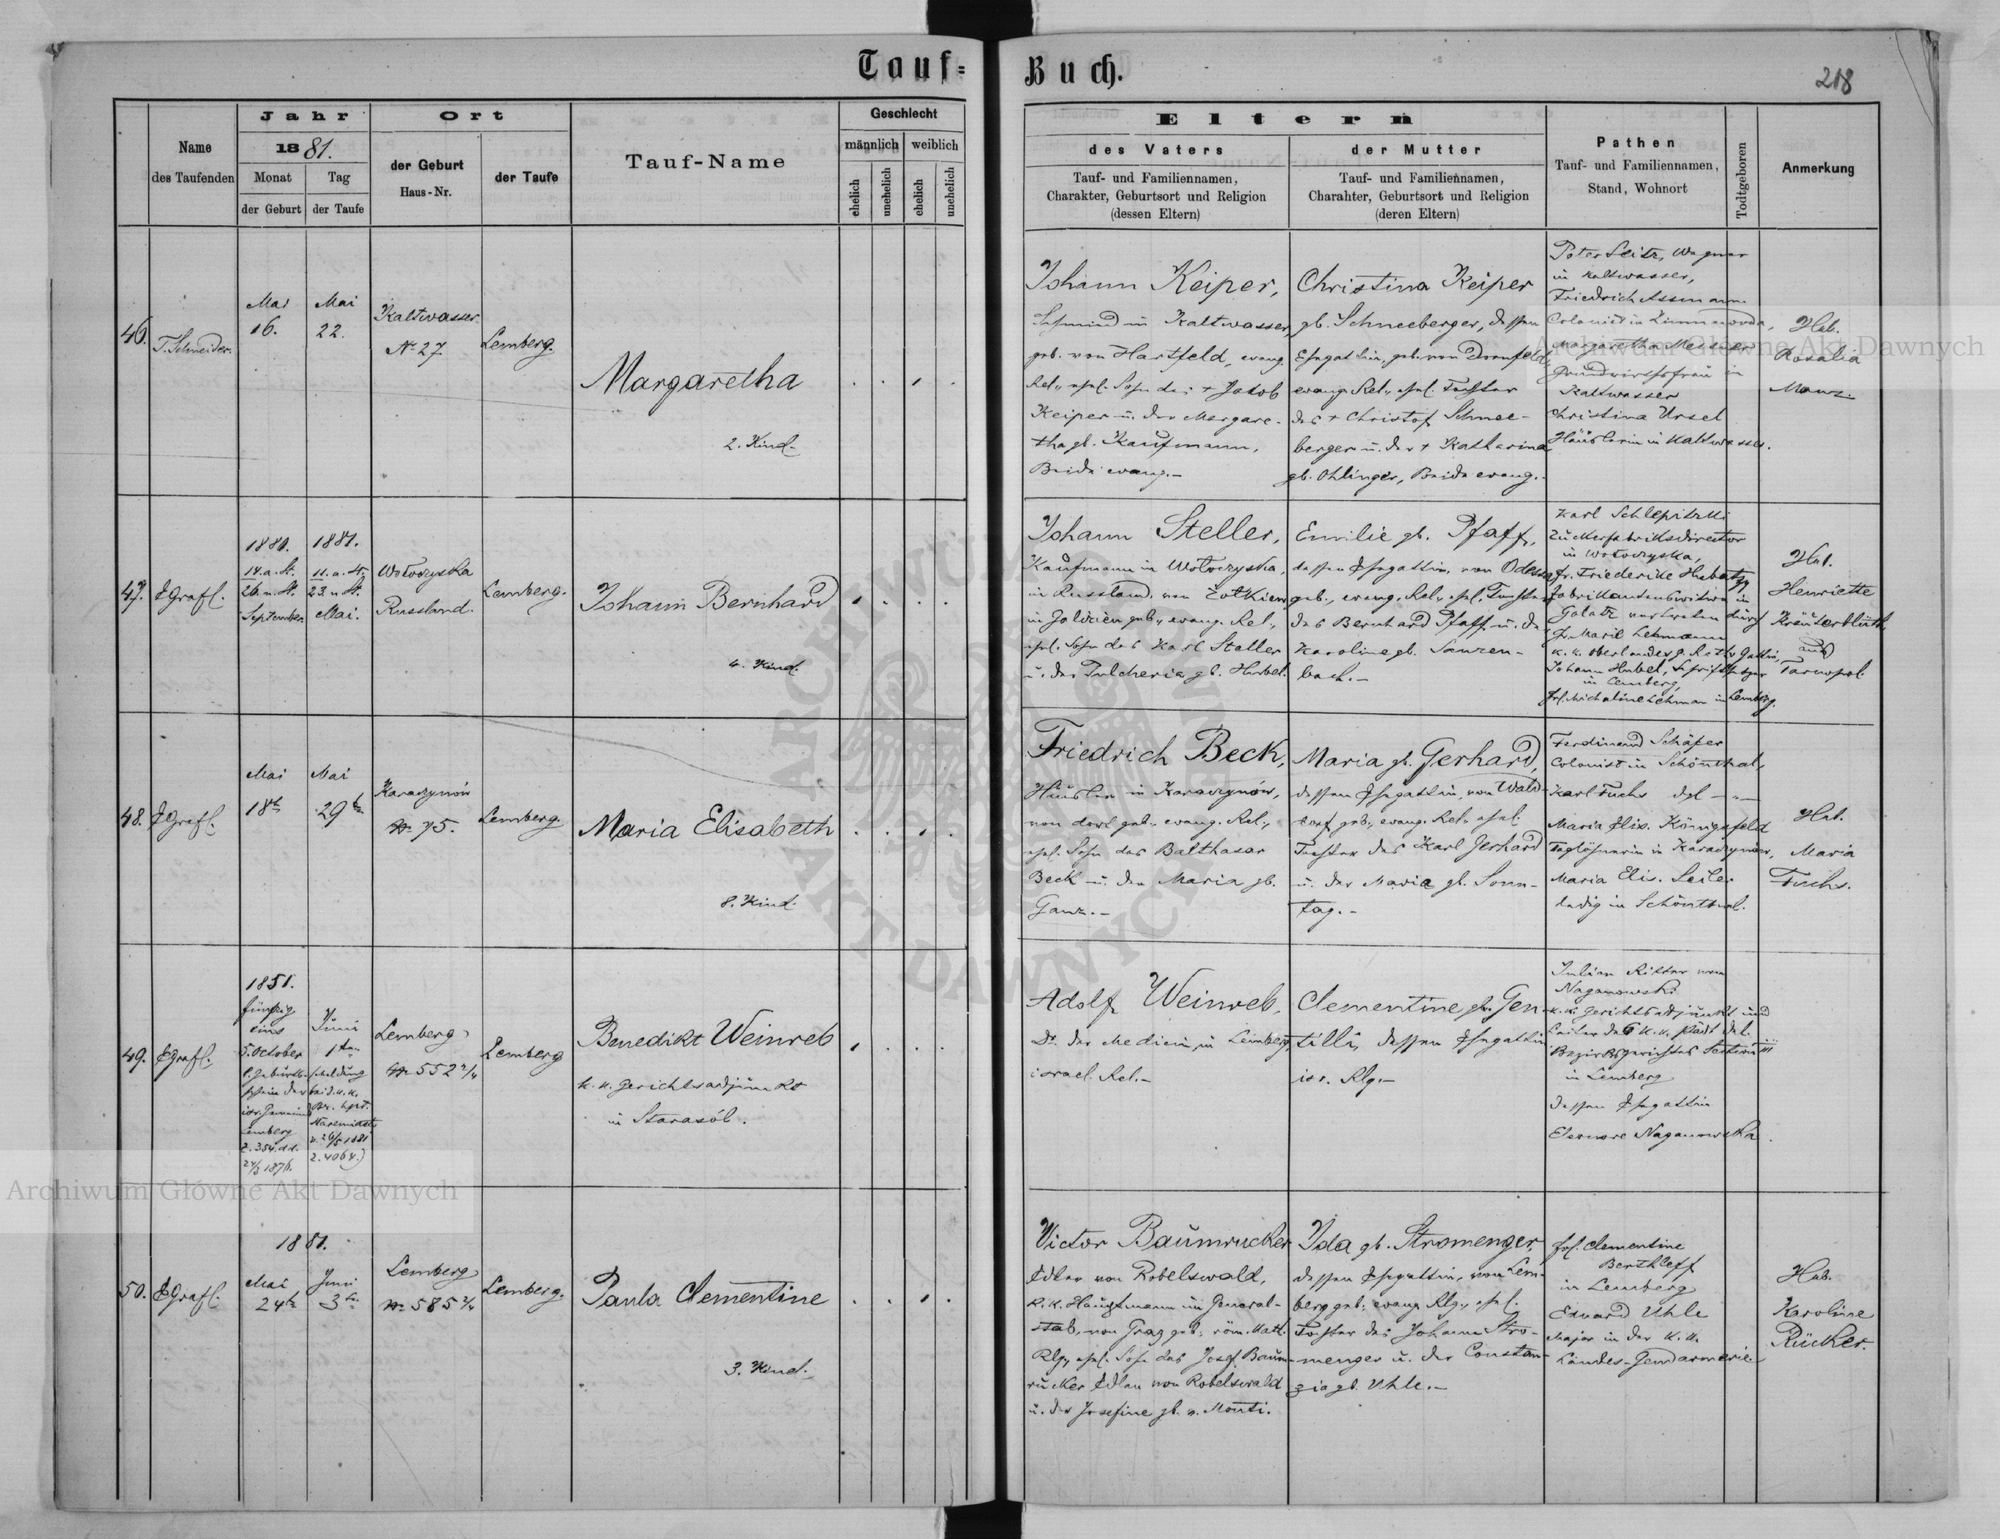 Tauf-
Buch.
218
Name
des Taufenden
Jahr
1881.
Monat
der Geburt
Tag
der Taufe
Ort
der Geburt
Haus-Nr.
der Taufe
Tauf-Name
Geschlecht
männlich
weiblich
ehelich
unehelich
ehelich
unehelich
Eltern
des Vaters
Tauf- und Familiennamen,
Charakter, Geburtsort und Religion
(dessen Eltern)
der Mutter
Tauf- und Familiennamen,
Charahter, Geburtsort und Religion
(deren Eltern)
Pathen
Tauf- und Familiennamen,
Stand, Wohnort
Todtgeboren
Anmerkung
46.
T. Schneider.
Mai
16.
Mai
22.
Kaltwasser
No 27
Lemberg.
Margaretha
2. Kind.
Johann Keiper,
Schmied in Kaltwasser,
geb. von Hartfeld, evang.
Rel., ehel. Sohn des + Jakob
Keiper u. der Margare-
tha gb. Kaufmann,
Beide evang.-
Christina Keiper
gb. Schneeberger, dessen
Ehegattin, geb. von Dornfeld,
evang. Rel., ehel. Tochter
des + Christof Schnee-
berger u. der + Katharina
gb. Ohlinger, Beide evang.-
Peter Seitz, Wagner
in Kaltwasser,
Friedrich Assmann
Colonist in Zimnawoda,
Margaretha Messer
Grundwirthsfrau in
Kaltwasser
Christina Ursel
Häuslerin in Kaltwasser.
Heb.
Rosalia
Manz.
47.
EGrafl.
1880.
14. a. St.
26. n. St.
September
1881.
11. a. St.
23. n. St.
Mai.
Wołoczyska
Russland.
Lemberg.
Johann Bernhard
4. Kind.
Johann Steller,
Kaufmann in Wołoczyska,
in Russland, von Żołkiew
in Galizien geb., evang. Rel.,
ehel. Sohn des Karl Steller
u. der Pulcheria gb. Hubel.
Emilie gb. Pfaff,
dessen Ehegattin, von Odessa
geb., evang. Rel., ehel. Tochter
des Bernhard Pfaff u. der
Karoline gb.
bach.-
Karl
Zuckerfabriksdirector
in Wołoczyska,
fr. Friederike
Fabrikantenswitwe in
Galatz vertreten durch
fr. Marie Lehmann
k. k. Oberlandesg. Raths Gattin,
Johann Hubel, Schriftsetzer
in Lemberg,
frl. Michaline Lehman in Lemberg.
Heb.
Henriette
Kräuterblüth
aus
Tarnopol.
48.
EGrafl.
Mai
18te
Mai
29te
Karaczynów
No 75.
Lemberg.
Maria Elisabeth
8. Kind.
Friedrich Beck,
Häusler in Karaczynów,
von dort geb., evang. Rel.,
ehel. Sohn des Balthasar
Beck u. der Maria gb.
Ganz.-
Maria gb. Gerhard,
dessen Ehegattin, von Wald-
dorf geb., evang. Rel., ehel.
Tochter des Karl Gerhard
u. der Maria gb. Sonn-
tag.-
Ferdinand Schäfer
Colonist in Schönthal,
Karl Fuchs dgl
Maria Elis. Königsfeld
Taglöhnerin in Karaczynów,
Maria Elis. Seiler
ledig in Schönthal.
Heb.
Maria
Fuchs.
49.
EGrafl.
1851.
fünfzig
eins
5. October
l. Geburts-
schein der
isr. Gemeinde
Lemberg
Z. 354. dd.
24/3 1876.
Juni
1ten
(Meldung
bei d. k. k.
Bz. Hpt.
Staremiasto
v. 26/5 1881
Z. 4064.)
Lemberg
No 552 2/4
Lemberg
Benedikt Weinreb
k. k. Gerichtsadjunkt
in Starasól.
Adolf Weinreb,
Dr. der Medicin, in Lemberg,
israel. Rel.-
Clementine gb. Gen-
tilli, dessen Ehegattin
isr. Rlg.-
Julian Ritter von
Naganowski
k. k. Gerichtsadjunkt und
Leiter des k. k. städt. del.
Bezirksgerichtes Section III
in Lemberg
dessen Ehegattin
Eleonore Naganowska.
50.
EGrafl.
1881.
Mai
24te
Juni
3te
Lemberg
No 585 2/4
Lemberg.
Paula Clementine
3. Kind.
Victor Baumrucker
Edler von Robelswald,
k. k. Hauptmann im General-
stab, von Graz geb., röm. kath.
Rlg., ehel. Sohn des Josef Baum-
rucker Edlen von Robelswald
u. der Josefine gb. v. Monti.
Ida gb. Stromenger,
dessen Ehegattin, von Lem-
berg geb., evang. Rlg., ehel.
Tochter des Johann Stro-
menger u. der Constan-
zia gb. Uhle.-
frl. Clementine
Berthleff
in Lemberg
Eduard Uhle
Major in der k. k.
Landes-Gendarmerie
Heb.
Karoline
Rücker.
Archiwum Główne Akt Dawnych
Archiwum Główne Akt Dawnych
ARCHIWUM GŁÓWNE AKT DAWNYCH